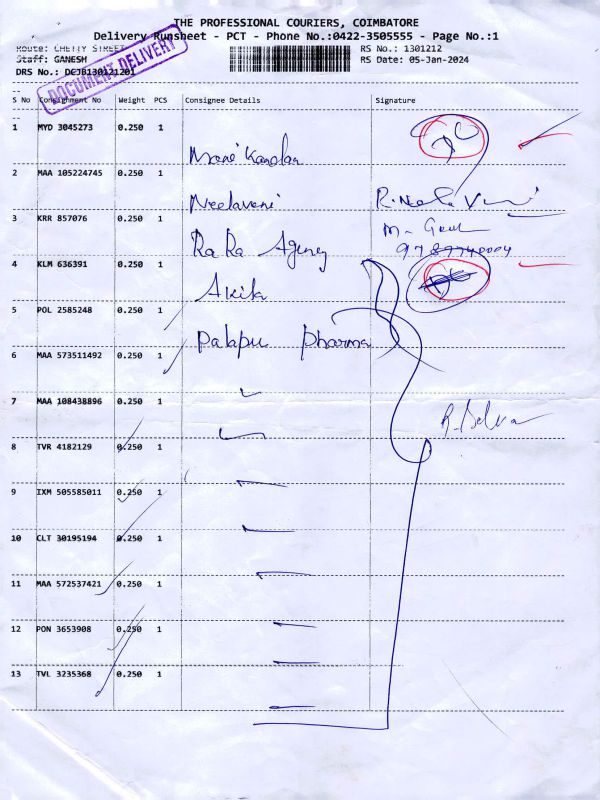 THE PROFESSIONAL COURIERS, COIMBATORE
Delivery Runsheet - PCT - Phone No.:0422-3505555 - Page No.:1
Route: CHETTY STREET
RS No.: 1301212
Staff: GANESH
RS Date: 05-Jan-2024
DRS No.: DCJB130121201
DOCUMENT DELIVERY
S No Consignment No Weight PCS Consignee Details Signature
1 MYD 3045273 0.250 1
Mani Kandan
2 MAA 105224745 0.250 1
Neelaveni R. Neela Veni
3 KRR 857076 0.250 1
Ra Ra Agency
9789740004
4 KLM 636391 0.250 1
5 POL 2585248 0.250 1
Palapu Pharma
6 MAA 573511492 0.250 1
7 MAA 108438896 0.250 1
R. Selva
8 TVR 4182129 0.250 1
9 IXM 505585011 0.250 1
10 CLT 30195194 0.250 1
11 MAA 572537421 0.250 1
12 PON 3653908 0.250 1
13 TVL 3235368 0.250 1